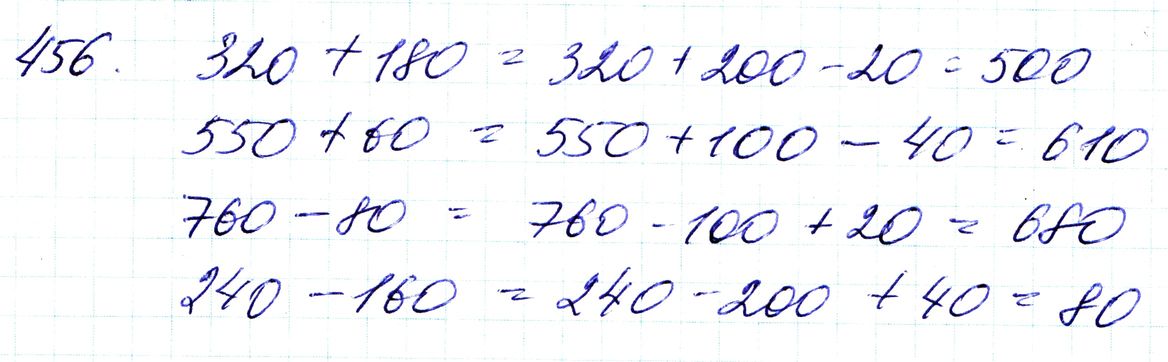 456. 320 + 180 = 320 + 200 - 20 = 500
550 + 60 = 550 + 100 - 40 = 610
760 - 80 = 760 - 100 + 20 = 680
240 - 160 = 240 - 200 + 40 = 80